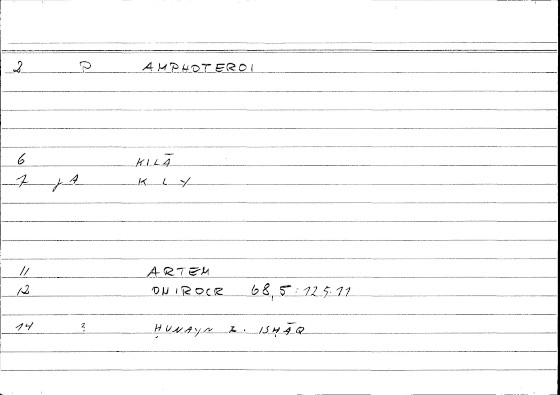 2 P AMPHOTEROI
6 KILĀ
7 jA K L Y
11 ARTEM
12 ONIROCR 68,5:125.11
14 ? ḤUNAYN I. ISḤĀQ